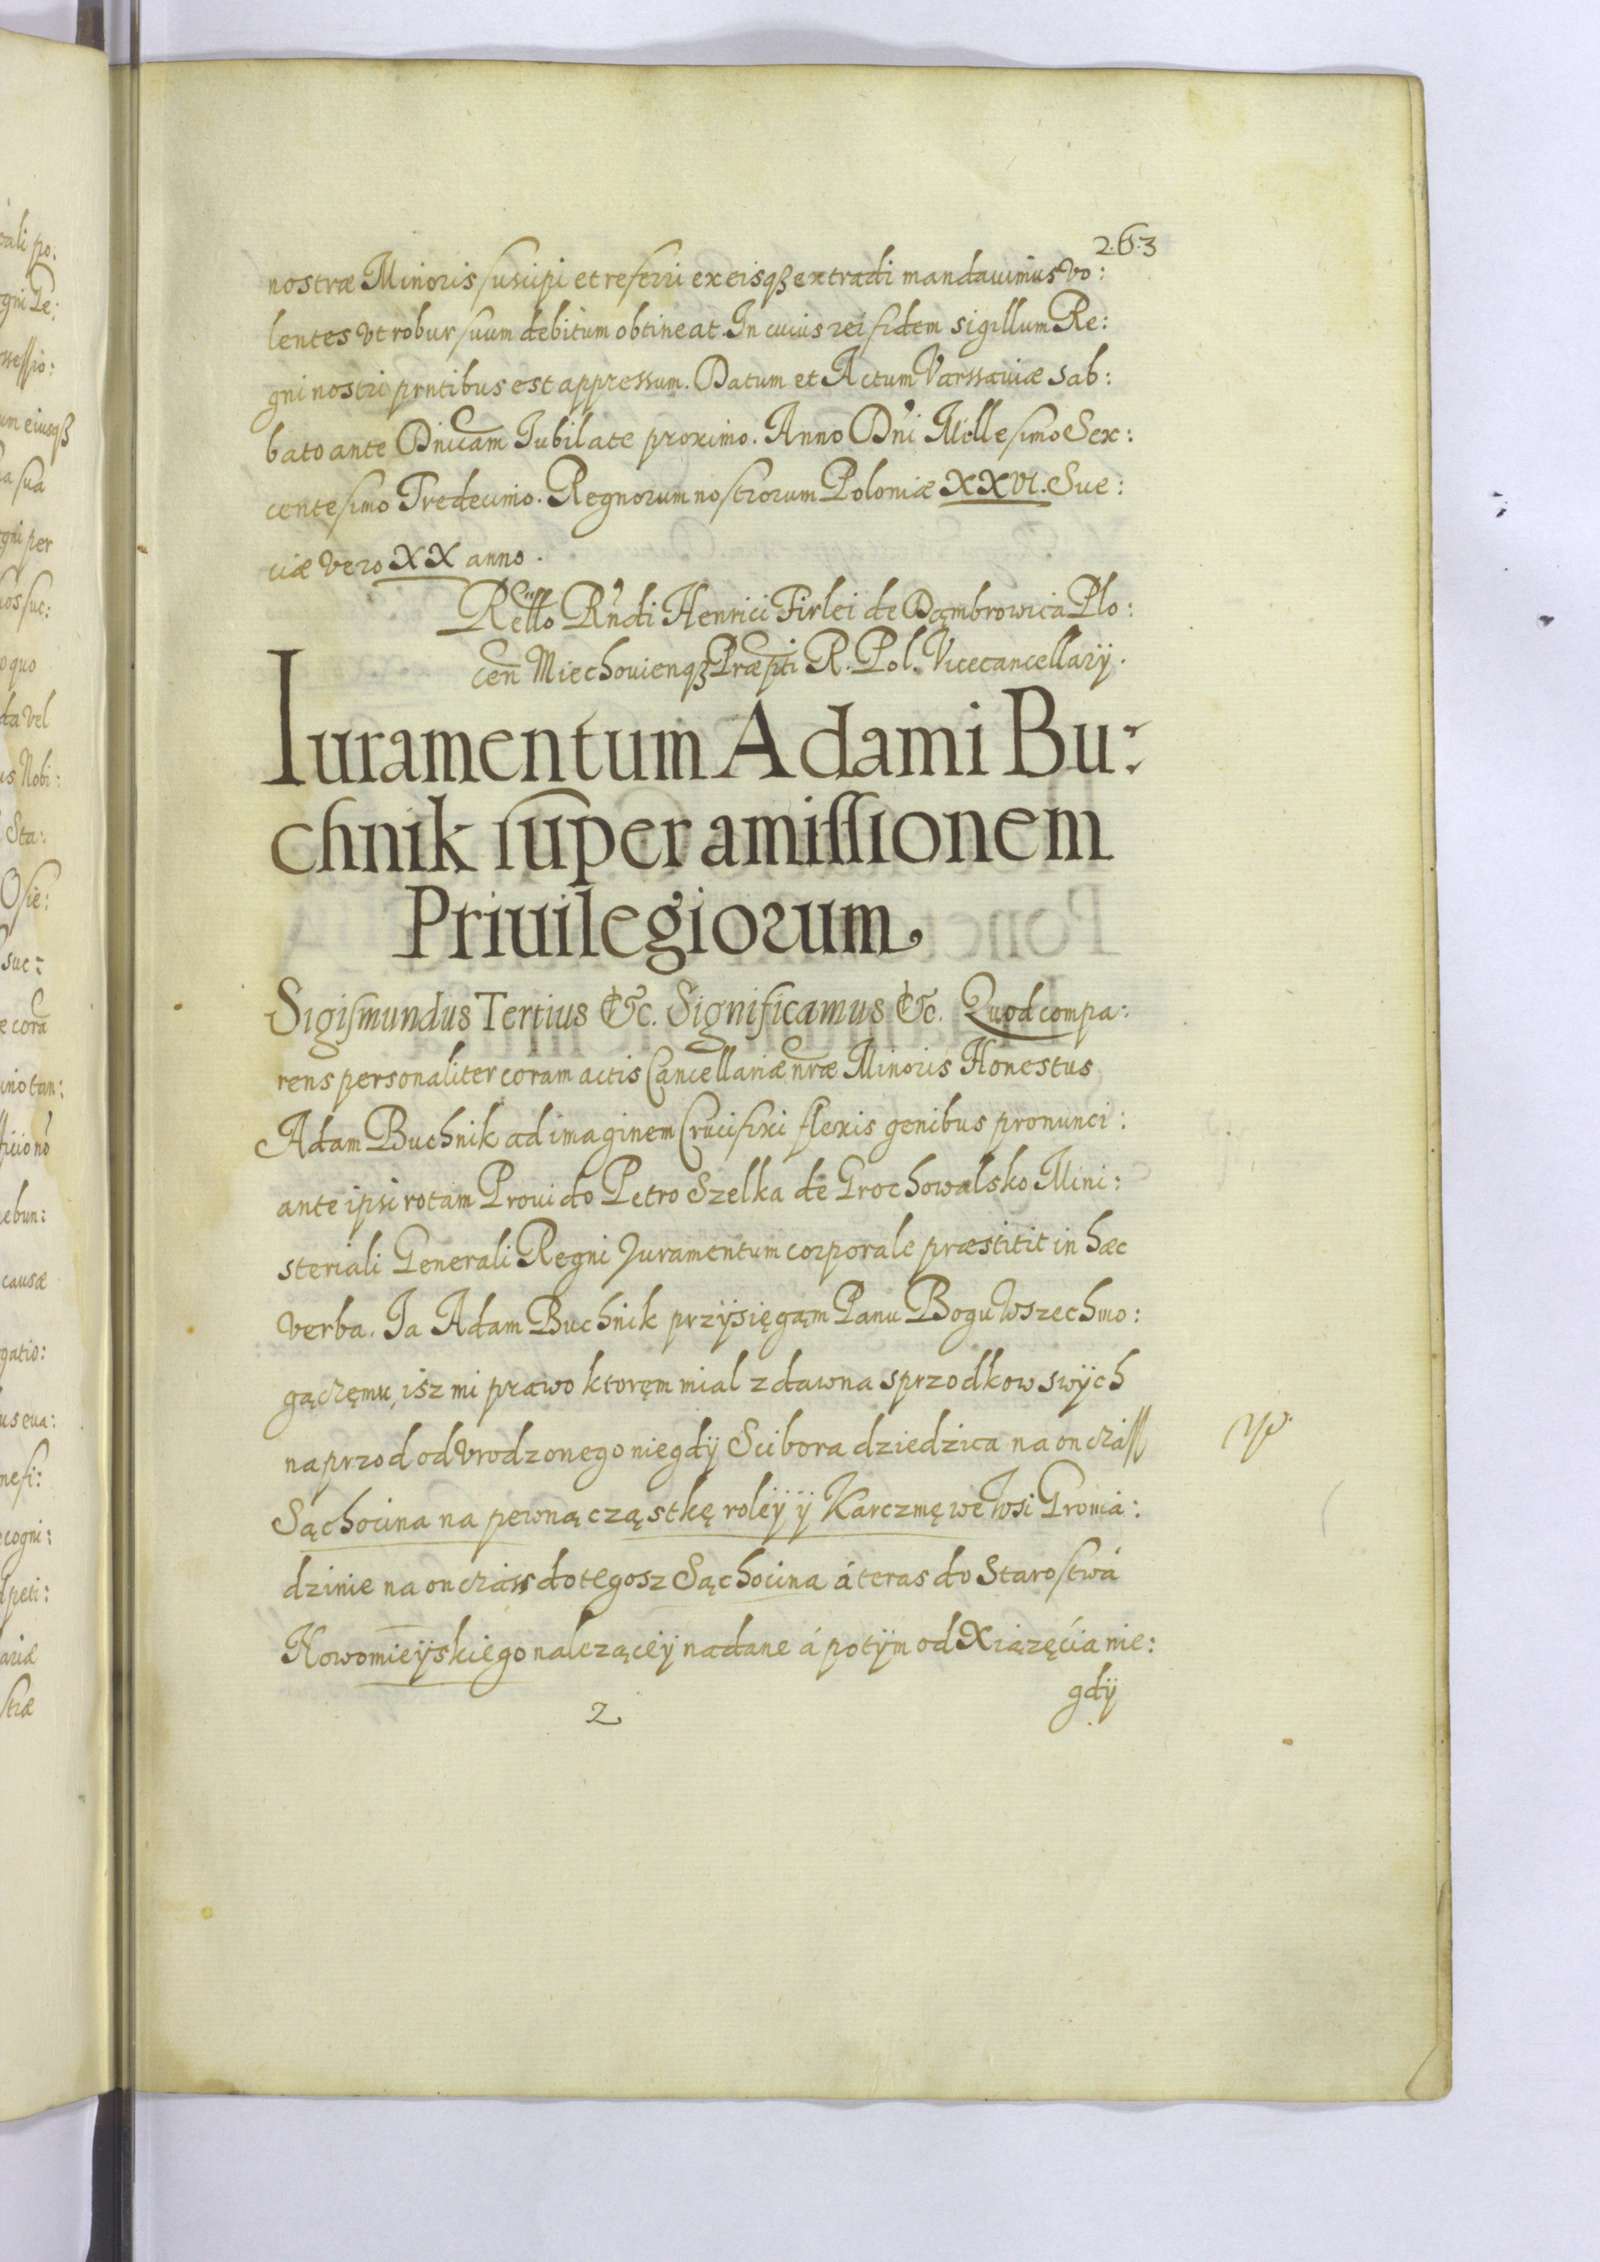 263
nostræ Minoris suscipi et referri ex eisqȝ extradi mandavimus Vo:
lentes Vt robur suum debitum obtineat. In cuius rei fidem sigillum Re:
gni nostri prntibus est appressum. Datum et Actum Varssaviæ sab:
bato ante Dnicam Iubilate proximo. Anno Dni Millesimo Sex:
centesimo Tredecimo. Regnorum nostrorum Poloniæ XXVI. Sue:
ciæ Vero XX anno.
Rello Rndi Henrici Firlei de Dąmbrowica Plo:
cen Miechovienqȝ Præpti R. Pol. Vicecancellarÿ.
Iuramentum Adami Bu:
chnik super amissionem
Priuilegiorum
Sigismundus Tertius &c. Significamus &c. Quod compa:
rens personaliter coram actis Cancellariæ nræ Minoris Honestus
Adam Buchnik ad imaginem Crucifixi flexis genibus pronunci:
ante ipsi rotam Provido Petro Szelka de Grochowalsko Mini:
steriali Generali Regni Iuramentum corporale præstitit in hæc
Verba. Ia Adam Buchnik przÿsięgąm Panu Bogu Wszechmo:
gączęmu, isz mi prawo ktoręm mial z dawna s przodkow swÿch
na przod od Vrodzonego niegdÿ Scibora dziedzica na on czass
Sąchocina na pewną cząstkę roleÿ ÿ Karczmę we Wsi Gromá:
dzinie na on czass do tegosz Sąchocina á teras do Starostwá
Nowomieÿskiego nalezączeÿ nadane á potÿm od Xiązęćia nie:
gdÿ
2